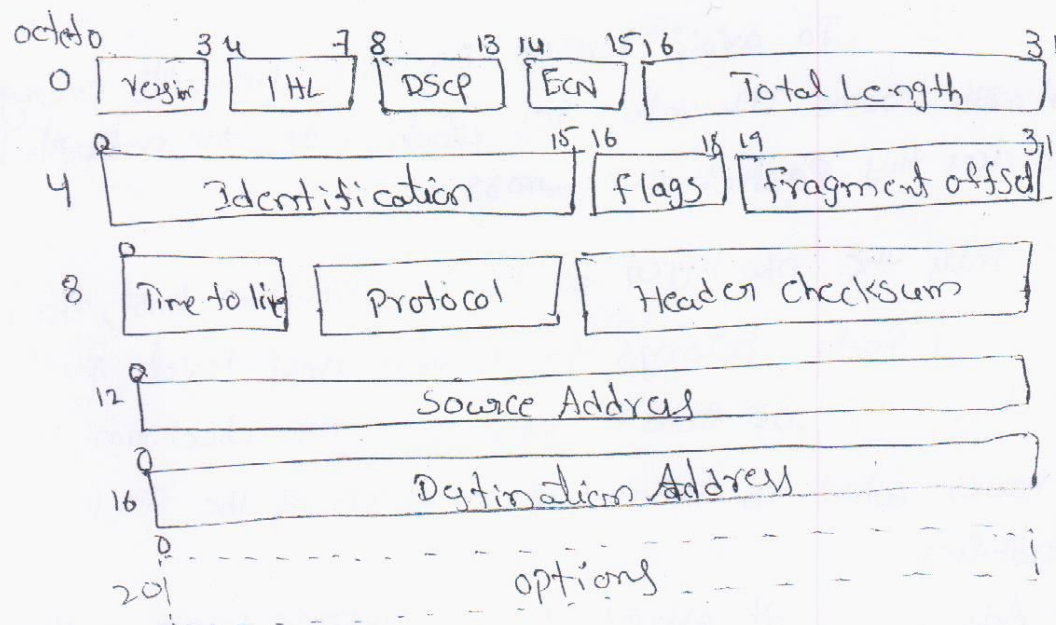 octet 0 3 4 7 8 13 14 15 16 31
0 IHL DSCP ECN Total Length
0 15 16 18 19 31
4 Identification Flags Fragment offset
0
8 Time to live Protocol Header checksum
0
12 Source Address
0
16 Destination Address
0
20 options